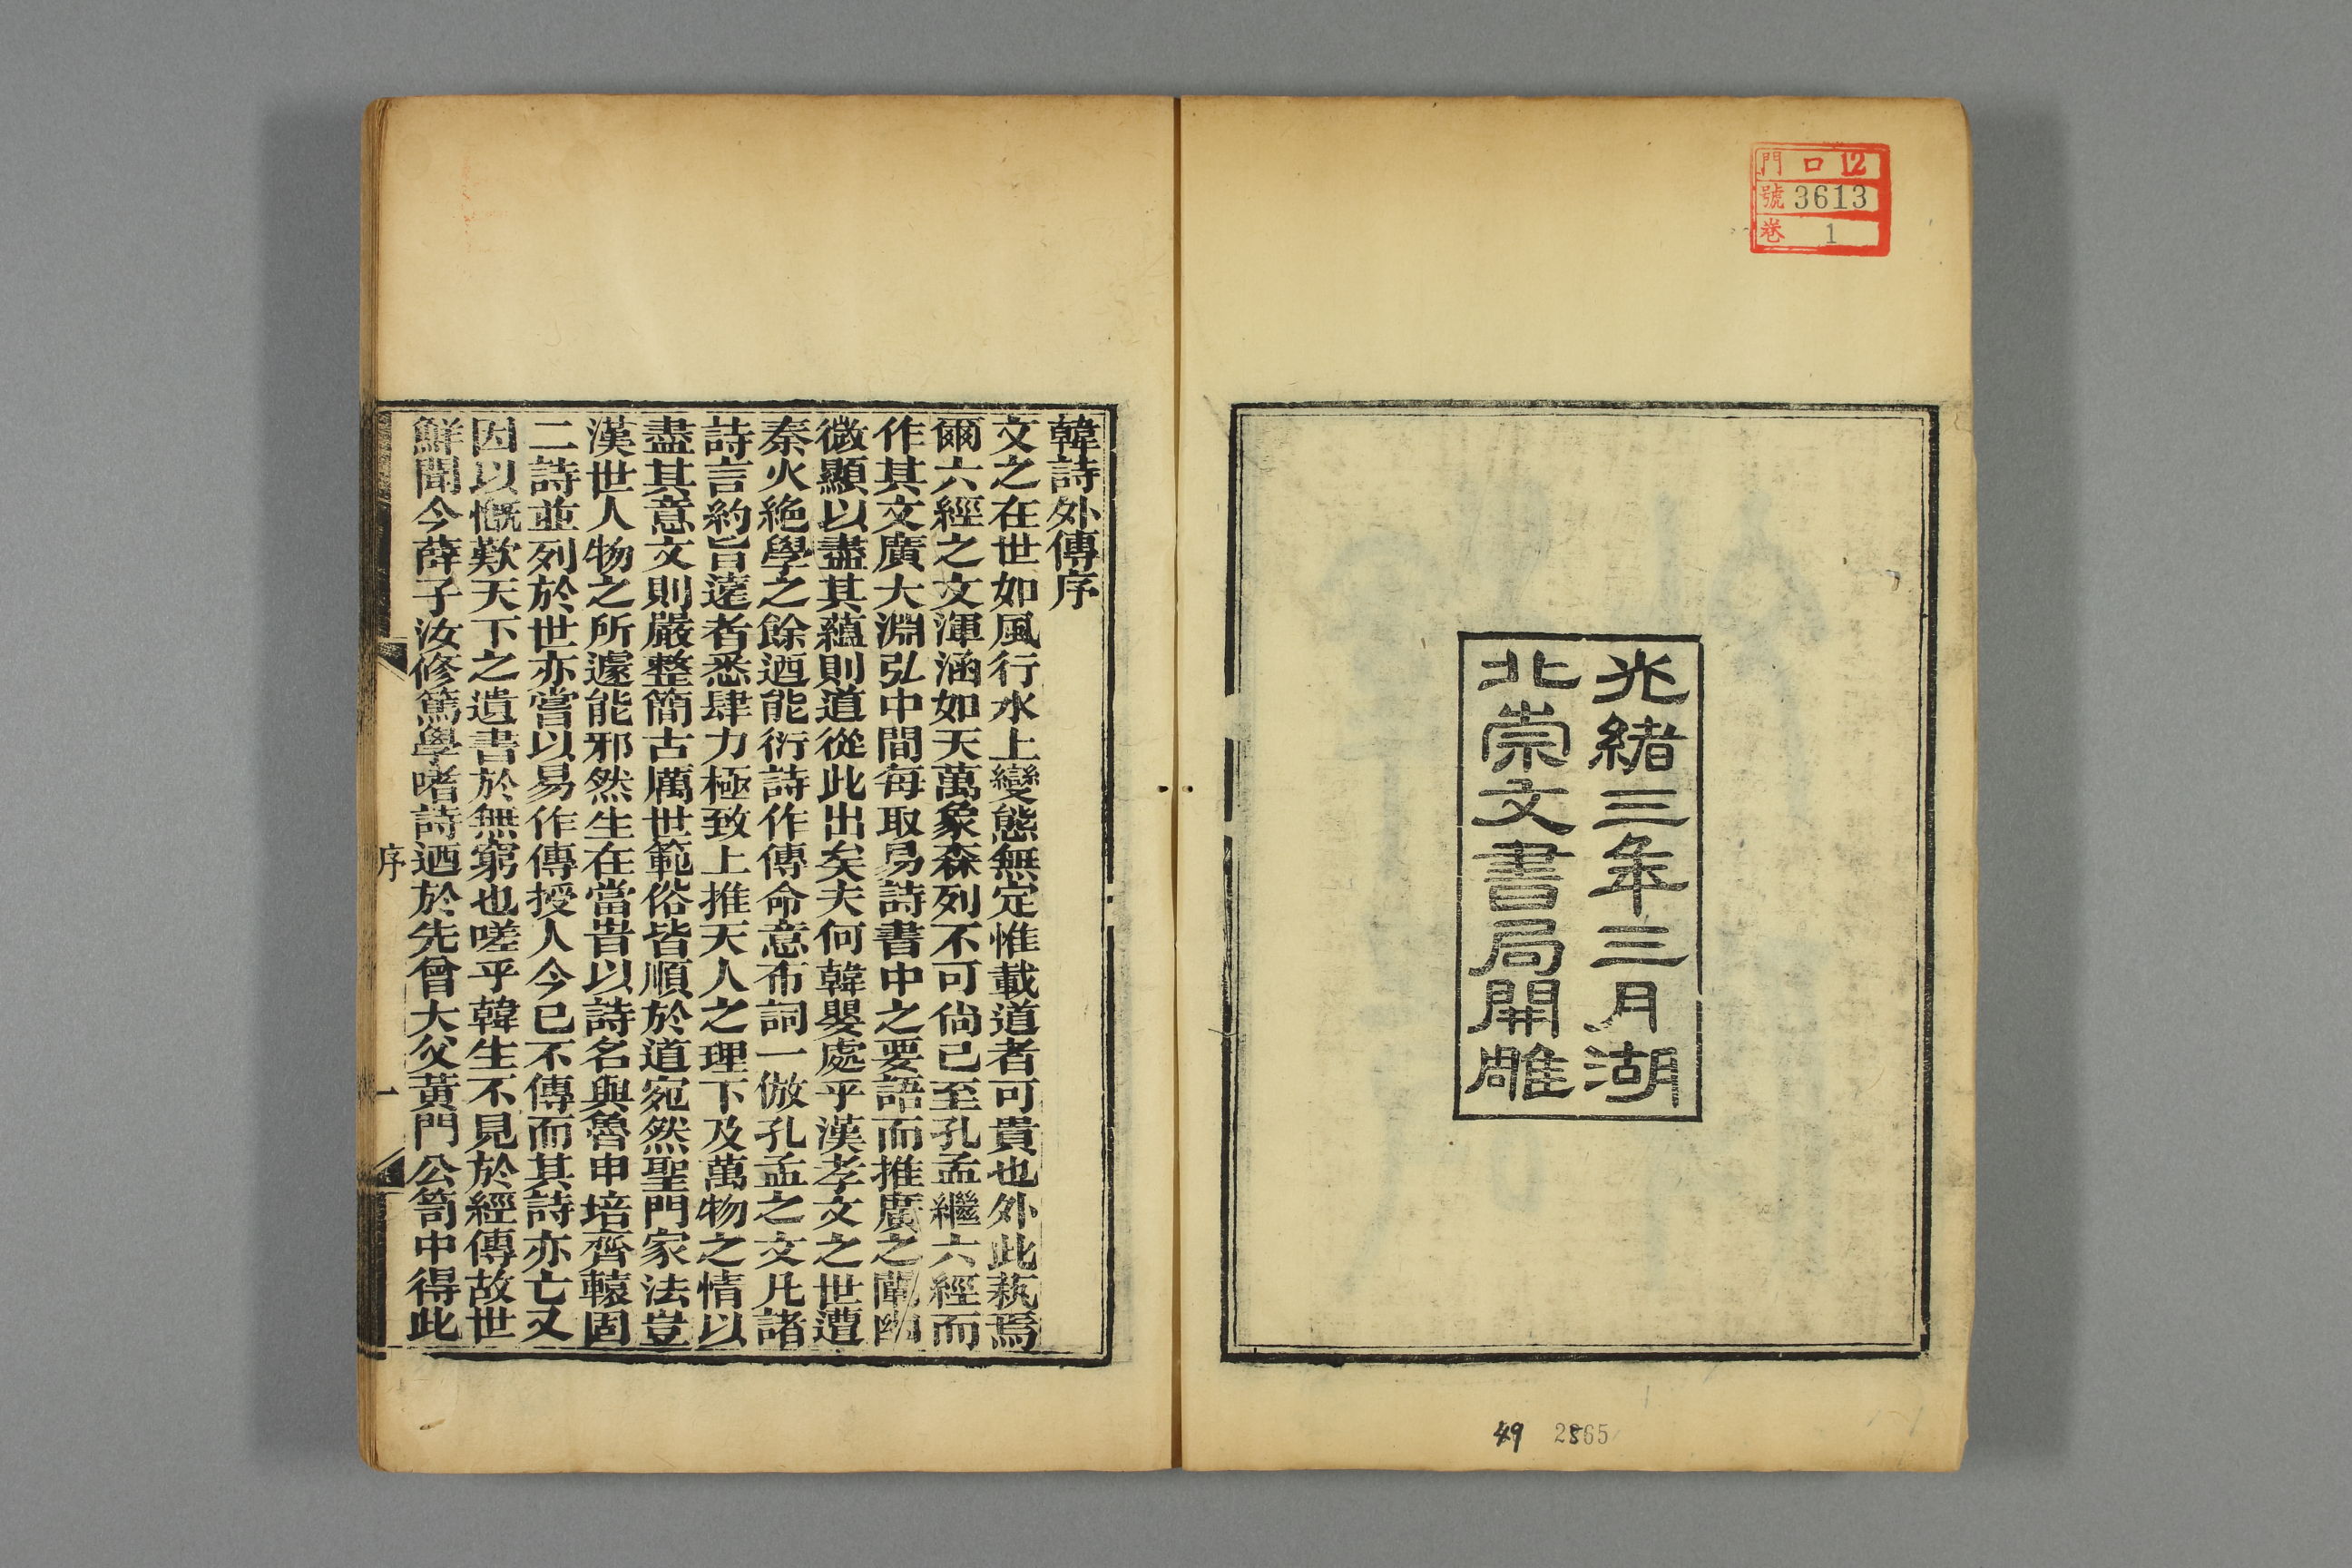 門 口 12
號 3613
巻 1
光緒三年三月湖
北崇文書局開雕
49 2865
韓詩外傳序
文之在世如風行水上變態無定惟載道者可貴也外此蓺焉
爾六經之文渾涵如天萬象森列不可尙已至孔孟繼六經而
作其文廣大淵弘中間每取易詩書中之要語而推廣之闡幽
微顯以盡其蘊則道從此出矣夫何韓嬰處乎漢孝文之世遭
秦火絶學之餘迺能衍詩作傳命意布詞一倣孔孟之文凡諸
詩言約旨遠者悉肆力極致上推天人之理下及萬物之情以
盡其意文則嚴整簡古厲世範俗皆順於道宛然聖門家法豈
漢世人物之所遽能邪然生在當昔以詩名與魯申培齊轅固
二詩並列於世亦嘗以易作傳授人今已不傳而其詩亦亡又
因以慨歎天下之遺書於無窮也嗟乎韓生不見於經傳故世
鮮聞今薛子汝修篤學嗜詩迺於先曾大父黃門公笥中得此
序
一